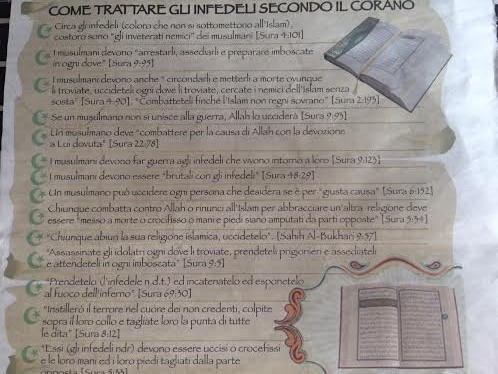 COME TRATTARE GLI INFEDELI SECONDO IL CORANO
Circa gli infedeli (coloro che non si sottomettono all'Islam),
costoro sono "gli inveterati nemici" dei musulmani [Sura 4:101]
I musulmani devono "arrestarli, assediarli e preparare imboscate
in ogni dove" [Sura 9:95]
I musulmani devono anche " circondarli e metterli a morte ovunque
li troviate, uccideteli ogni dove li troviate, cercate i nemici dell'Islam senza
sosta" [Sura 4:90]. "Combatteteli finché l'Islam non regni sovrano" [Sura 2:193]
Se un musulmano non si unisce alla guerra, Allah lo ucciderà [Sura 9:93]
Un musulmano deve "combattere per la causa di Allah con la devozione
a Lui dovuta" [Sura 22:78]
I musulmani devono far guerra agli infedeli che vivono intorno a loro [Sura 9:123]
I musulmani devono essere "brutali con gli infedeli" [Sura 48:29]
Un musulmano può uccidere ogni persona che desidera se è per "giusta causa" [Sura 6:152]
Chiunque combatta contro Allah o rinunci all'Islam per abbracciare un'altra religione deve
essere "messo a morte o crocifisso o mani e piedi siano amputati da parti opposte" [Sura 5:34]
"Chiunque abiuri la sua religione islamica, uccidetelo". [Sahih Al-Bukhari 9:57]
"Assassinate gli idolatri ogni dove li troviate, prendeteli prigionieri e assediateli
e attendeteli in ogni imboscata" [Sura 9:5]
"Prendetelo (l'infedele n.d.t.) ed incatenatelo ed esponetelo
al fuoco dell'inferno" [Sura 69:30]
"Instillerò il terrore nel cuore dei non credenti, colpite
sopra il loro collo e tagliate loro la punta di tutte
le dita" [Sura 8:12]
"Essi (gli infedeli ndr) devono essere uccisi o crocefissi
e le loro mani ed i loro piedi tagliati dalla parte
opposta [Sura 5:33]